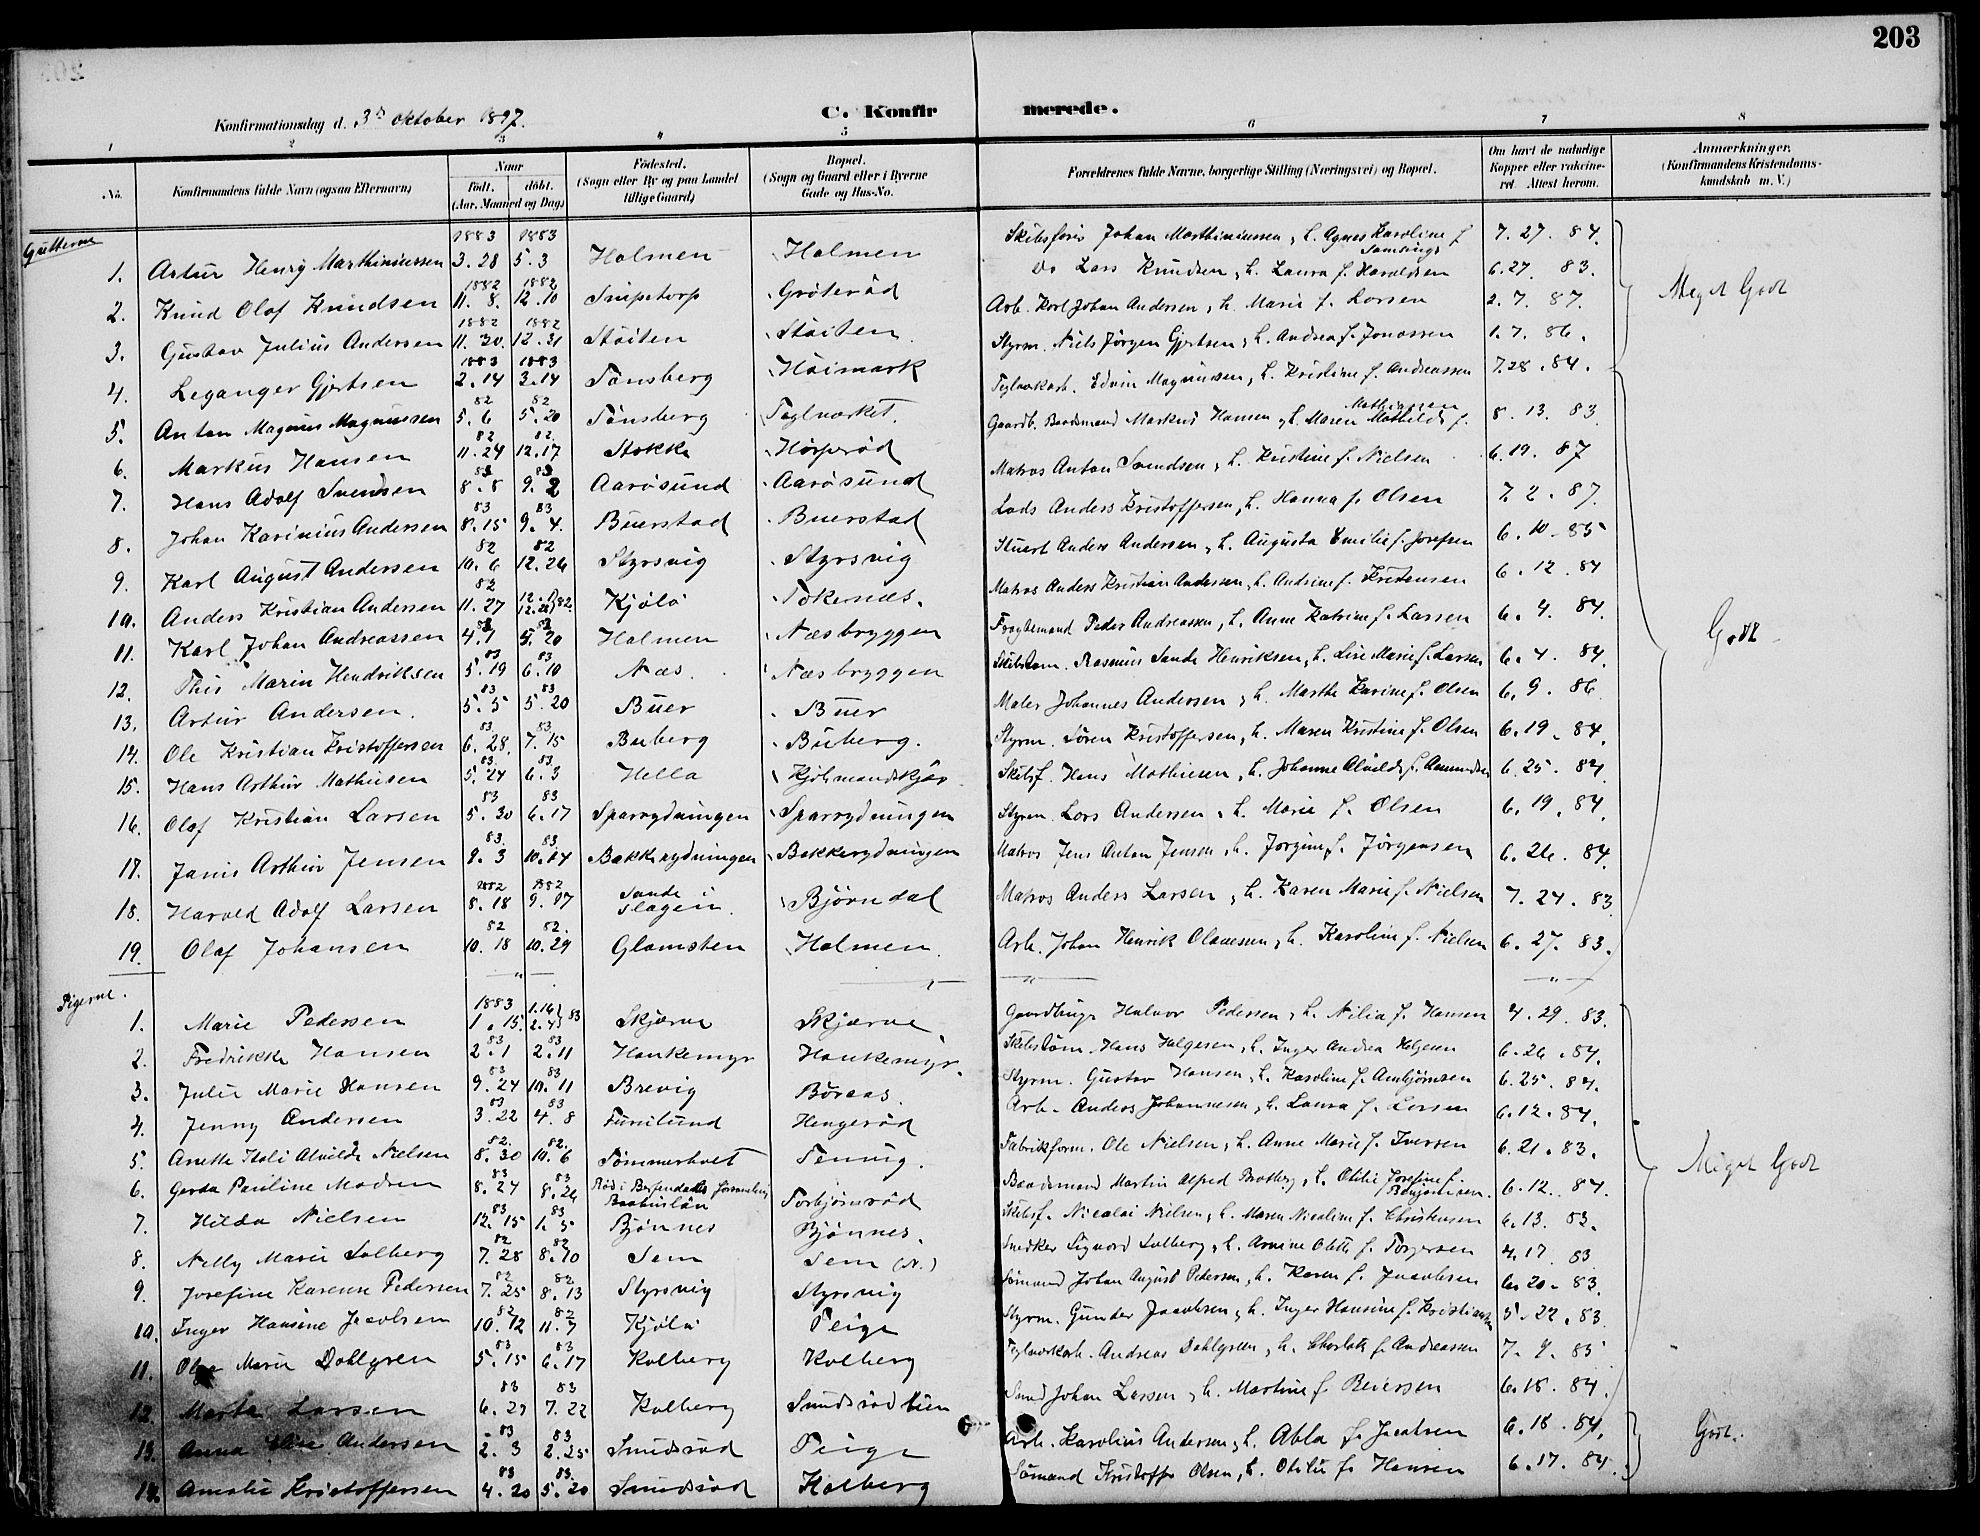 203
Konfirmationsdag d. 3die oktober 1897.
C. Konfirmerede.
1 2 3 4 5 6 7 8
No.
Konfirmandens fulde Navn (ogsaa Efternavn)
Naar
Födt. döbt.
(Aar, Maaned og Dag)
Födested.
(Sogn eller By og paa Landet tillige Gaard)
Bopæl.
(Sogn og Gaard eller i Byerne Gade og Hus-No.
Forældrenes fulde Navne, borgerlige Stilling (Næringsvei) og Bopæl.
Om havt de naturlige Kopper eller vakcineret. Attest herom.
Anmærkninger.
(Konfirmandens Kristendomskundskab m. V.)
Gutterne
1. Artur Henry Marthiniussen 1883 3. 28 1883 5. 3 Holmen Holmen Skibsfører Johan Marthiniussen, h. Agnes Karoline f. 7. 27. 84.
2. Knud Olaf Knudsen 1882 11. 8. 1882 12. 10 Snipetorp Gröteröd Do Lars Knudsen, h. Laura f. Haraldsen 6. 27. 83. Meget Godt
3. Gustav Julius Andersen 1882 11. 30. 1882 12. 31 Støiten Støiten Arb. Karl Johan Andersen, h. Marie f. Larsen 2. 7. 87.
4. Leganger Gjertsen 1883 2. 14 1883 3. 14 Tønsberg Høimark Styrm. Niels Jørgen Gjertsen, h. Andrea f. Jonassen 1. 7. 86.
5. Anton Magnus Magnussen 82 5. 6 82 5. 20 Tønsberg Teglværket Teglværkarb. Edvin Magnussen, h. Kristine f. Andreassen 7. 28. 84.
6. Markus Hansen 82 11. 24 82 12. 17 Stokke Hørperød Gaardb. Baadsmand Markus Hansen, h. Maren Mathilde f. Mathiassen 8. 13. 83
7. Hans Adolf Svendsen 83 8. 8 83 9. 2 Aarøsund Aarøsund Matros Anton Svendsen, h. Kristine f. Nielsen 6. 19. 87
8. Johan Karinius Andersen 83 8. 15 83 9. 4. Buerstad Buerstad Lods Anders Kristoffersen, h. Hanna f. Olsen 7. 2. 87.
9. Karl August Andersen 82 10. 6 82 12. 26 Styrsvig Styrsvig Stuert Anders Andersen, h. Augusta Emilie f. Josefsen 6. 10. 85
10. Anders Kristian Andersen 82 11. 27 Kjölö Tokenæs. Matros Anders Kristian Andersen, h. Andrine f. Kristensen 6. 12. 84
11. Karl Johan Andreassen 4. 1 5. 20 Holmen Næsbryggen Fragtemand Peder Andreassen, h. Anne Katrine f. Larsen 6. 4. 84.
12. This Marin Hendriksen 83 5. 19 83 6. 10 Næs. Næsbryggen Skibstøm. Rasmus Sande Henriksen, h. Lise Marie f. Larsen 6. 4. 84.
13. Artur Andersen. 83 5. 5 83 5. 20 Buer Buer Maler Johannes Andersen, h. Marthe Karine f. Olsen 6. 9. 86
14. Ole Kristian Kristoffersen 83 6. 28. 83 7. 15 Buberg Buberg. Styrm. Søren Kristoffersen, h. Maren Kristine f. Olsen 6. 19. 84. Godt
15. Hans Arthur Mathiesen 83 5. 24 83 6. 3 Hella Kjöbmandskjær Skibsf. Hans Mathiesen, h. Johanne Alvilde f. Aamundsen 6. 25. 84.
16. Olaf Kristian Larsen 83 5. 30 83 6. 17 Sparrydningen Sparrydningen Styrm. Lars Andersen, h. Marie f. Olsen 6. 19. 84.
17. Janis Arthur Jensen 83 9. 3 83 10. 14 Bakkerydningen Bakkerydningen Matros Jens Anton Jensen, h. Jörgine f. Jørgensen 6. 26. 84.
18. Harald Adolf Larsen 1882 8. 18 1882 9. 17 Sande Slagen. Bjørndal Matros Anders Larsen, h. Karen Marie f. Nielsen 7. 24. 83.
19. Olaf Johansen 82 10. 18 82. 10. 29 Glamsten Holmen. Arb. Johan Henrik Olaussen, h. Karoline f. Nielsen 6. 27. 83.
Pigerne.
1. Marie Pedersen 1883 1. 15. 1.14 2. 4 83 Skjærve Skjærve Gaardbruger Halvor Pedersen, h. Nilia f. Hansen 4. 29. 83.
2. Fredrikke Hansen 83 2. 1 83 2. 11 Hankemyr Hankemyr. Skibstøm. Hans Helgesen, h. Inger Andrea Helgesen 6. 26. 84.
3. Julie Marie Hansen 83 9. 24 83 10. 11 Brevig Böraas. Styrm. Gustav Hansen, h. Karoline f. Ambjørnsen 6. 25. 84.
4. Jenny Andersen 83 3. 22 83 4. 8 Furulund Hengeröd Arb. Anders Johannesen, h. Laura f. Larsen 6. 12. 84.
5. Anette Itali Alvilde Nielsen 82. 8. 30 82. 10. 6 Tömmerholt Tenvig. Fabrikform. Ole Nielsen, h. Anne Marie f. Iversen 6. 21. 83.
6. Gerda Pauline Madsen 83 8. 24 83 8. 26 Röd i Bohuslän Torbjørnröd Baadsmand Martin Alfred Brotberg, h. Otilie Josefine f. Benjaminsen. 6. 12. 84. Meget Godt
7. Hilda Nielsen 83 12. 15 83 1. 5 Bjönnes Bjönnes. Skibsf. Nicolai Nielsen, h. Maren Nicoline f. Christensen 6. 13. 83.
8. Nelly Marie Solberg 82 7. 28 82 8. 10 Sem Sem (N.) Snedker Sigvard Solberg, h. Arnine Olette f. Torgersen 4. 17. 83
9. Josefine Karenne Pedersen 82 7. 25 82 8. 13 Styrsvig Styrsvig Sømand Johan August Pedersen, h. Karen f. Jacobsen 6. 20. 83.
10. Inger Hansine Jacobsen 82 10. 12 82 11. 7 Kjölö Teige Styrm. Gunder Jacobsen, h. Inger Hansine f. Kristiansen 5. 22. 83
11. Olga Marie Dahlgren 83 5. 15 83 6. 17 Kolberg Kolberg Teglværkarb. Andreas Dahlgreen, h. Charlotte f. Andreassen 7. 9. 85
12. Marta Larsen 83 6. 27 83 7. 22 Kolberg Smidsrödlien Smed Johan Larsen, h. Martine f. Beiersen 6. 18. 84.
13. Anna Elise Andersen 83 2. 3 83 2. 25 Smidsröd Teige Arb. Karolius Andersen, h. Abla f. Jacobsen 6. 18. 84. Godt.
14. Amalie Kristoffersen 83 4. 20 83. 5. 20 Smidsröd Kolberg Sömand Kristoffer Olsen, h. Otilie f. Hansen 6. 17. 84.